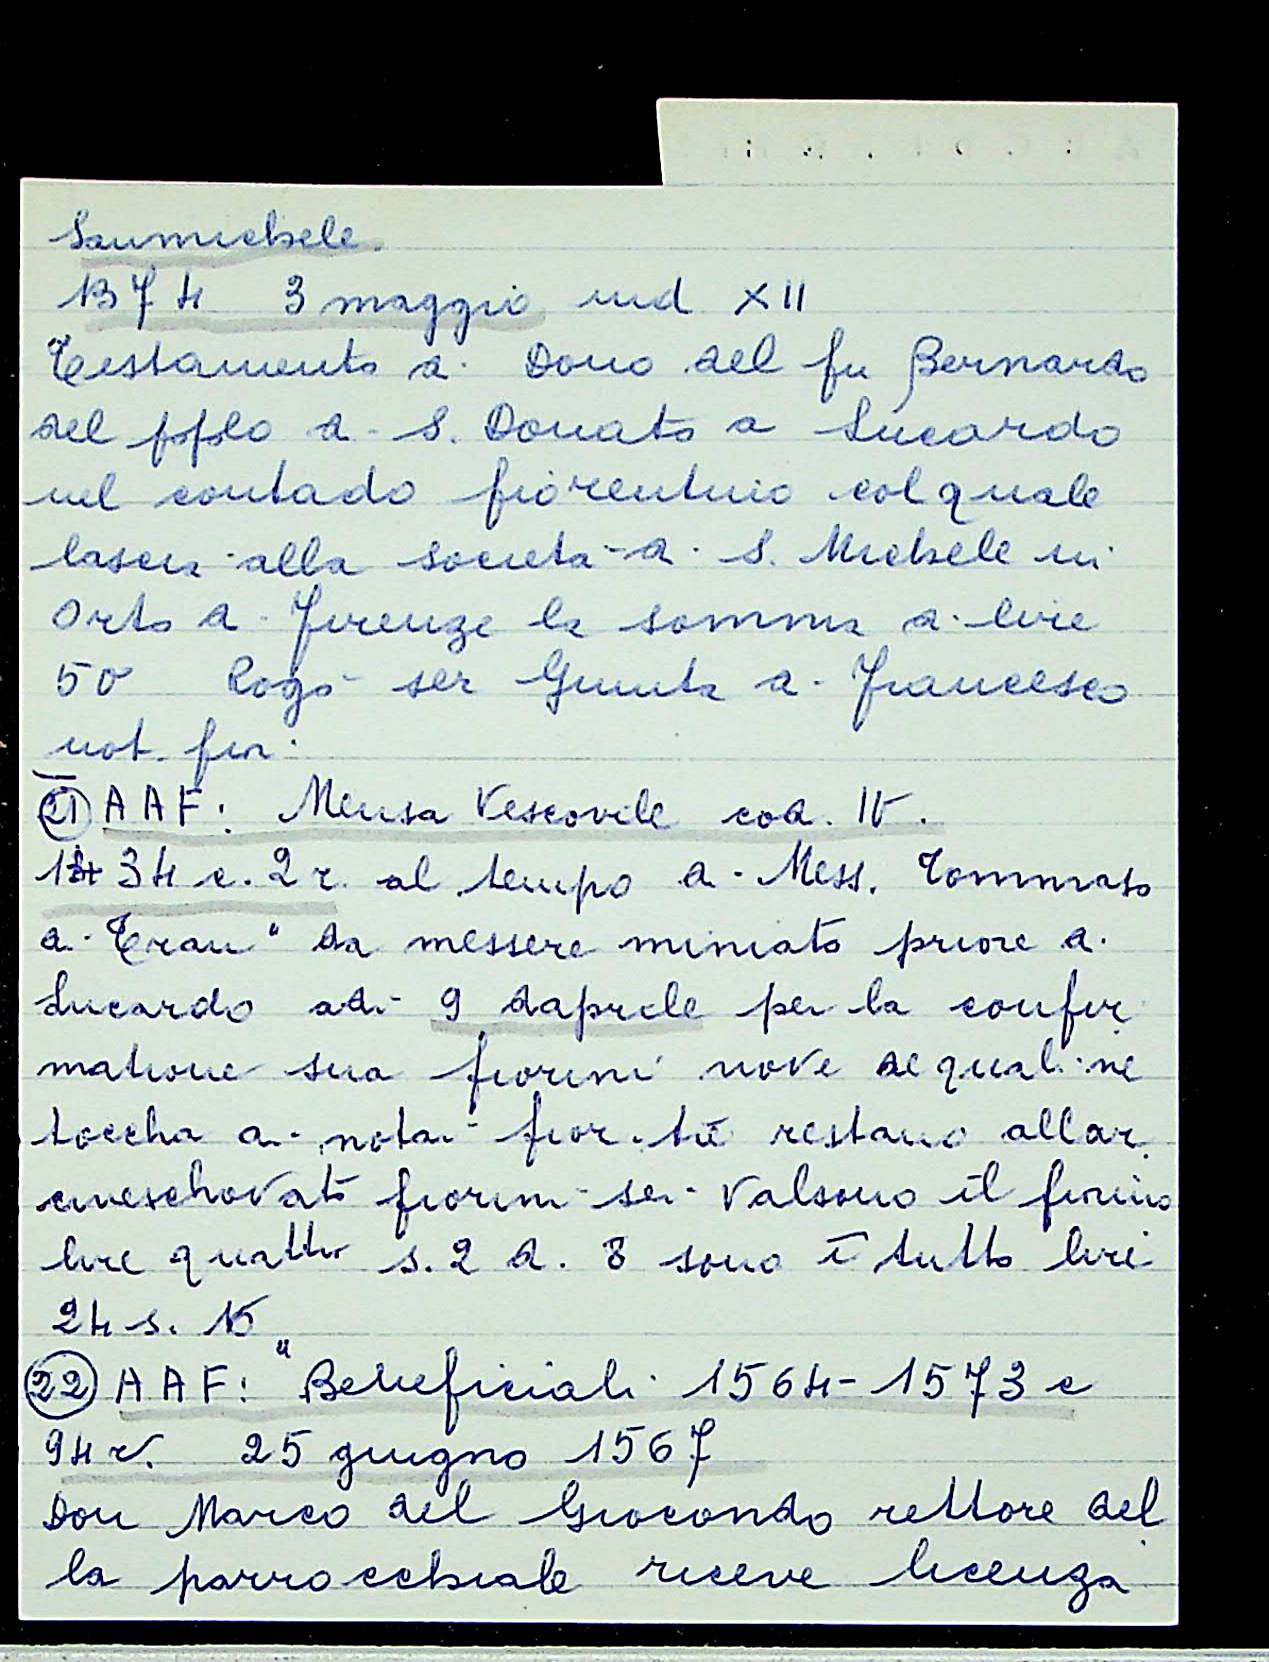 Sanmichele.
1374 3 maggio ind XII
Testamento di Dono del fu Bernardo
del pplo di S. Donato a Lucardo
nel contado fiorentino col quale
lascia alla società di S. Michele in
Orto di Firenze la somma di lire
50 Rogò ser Giunta di Francesco
not. fior:
(21) AAF: Mensa Vescovile cod. IV.
1434 c. 2 r. al tempo di Mess. Tommaso
di Trau" da messere miniato priore di
Lucardo adì 9 daprile per la confir
matione sua fiorini nove de quali ne
toccha ai notai fior. tre restano allar
civeschovato fiorini sei Valsono il fiorino
lire quattro s. 2 d. 8 sono ī tutto lire
24 s. 16
(22) AAF: "Beneficiali 1564-1573 c
94 v. 25 giugno 1567
Don Marco del Giocondo rettore del
la parrocchiale riceve licenza